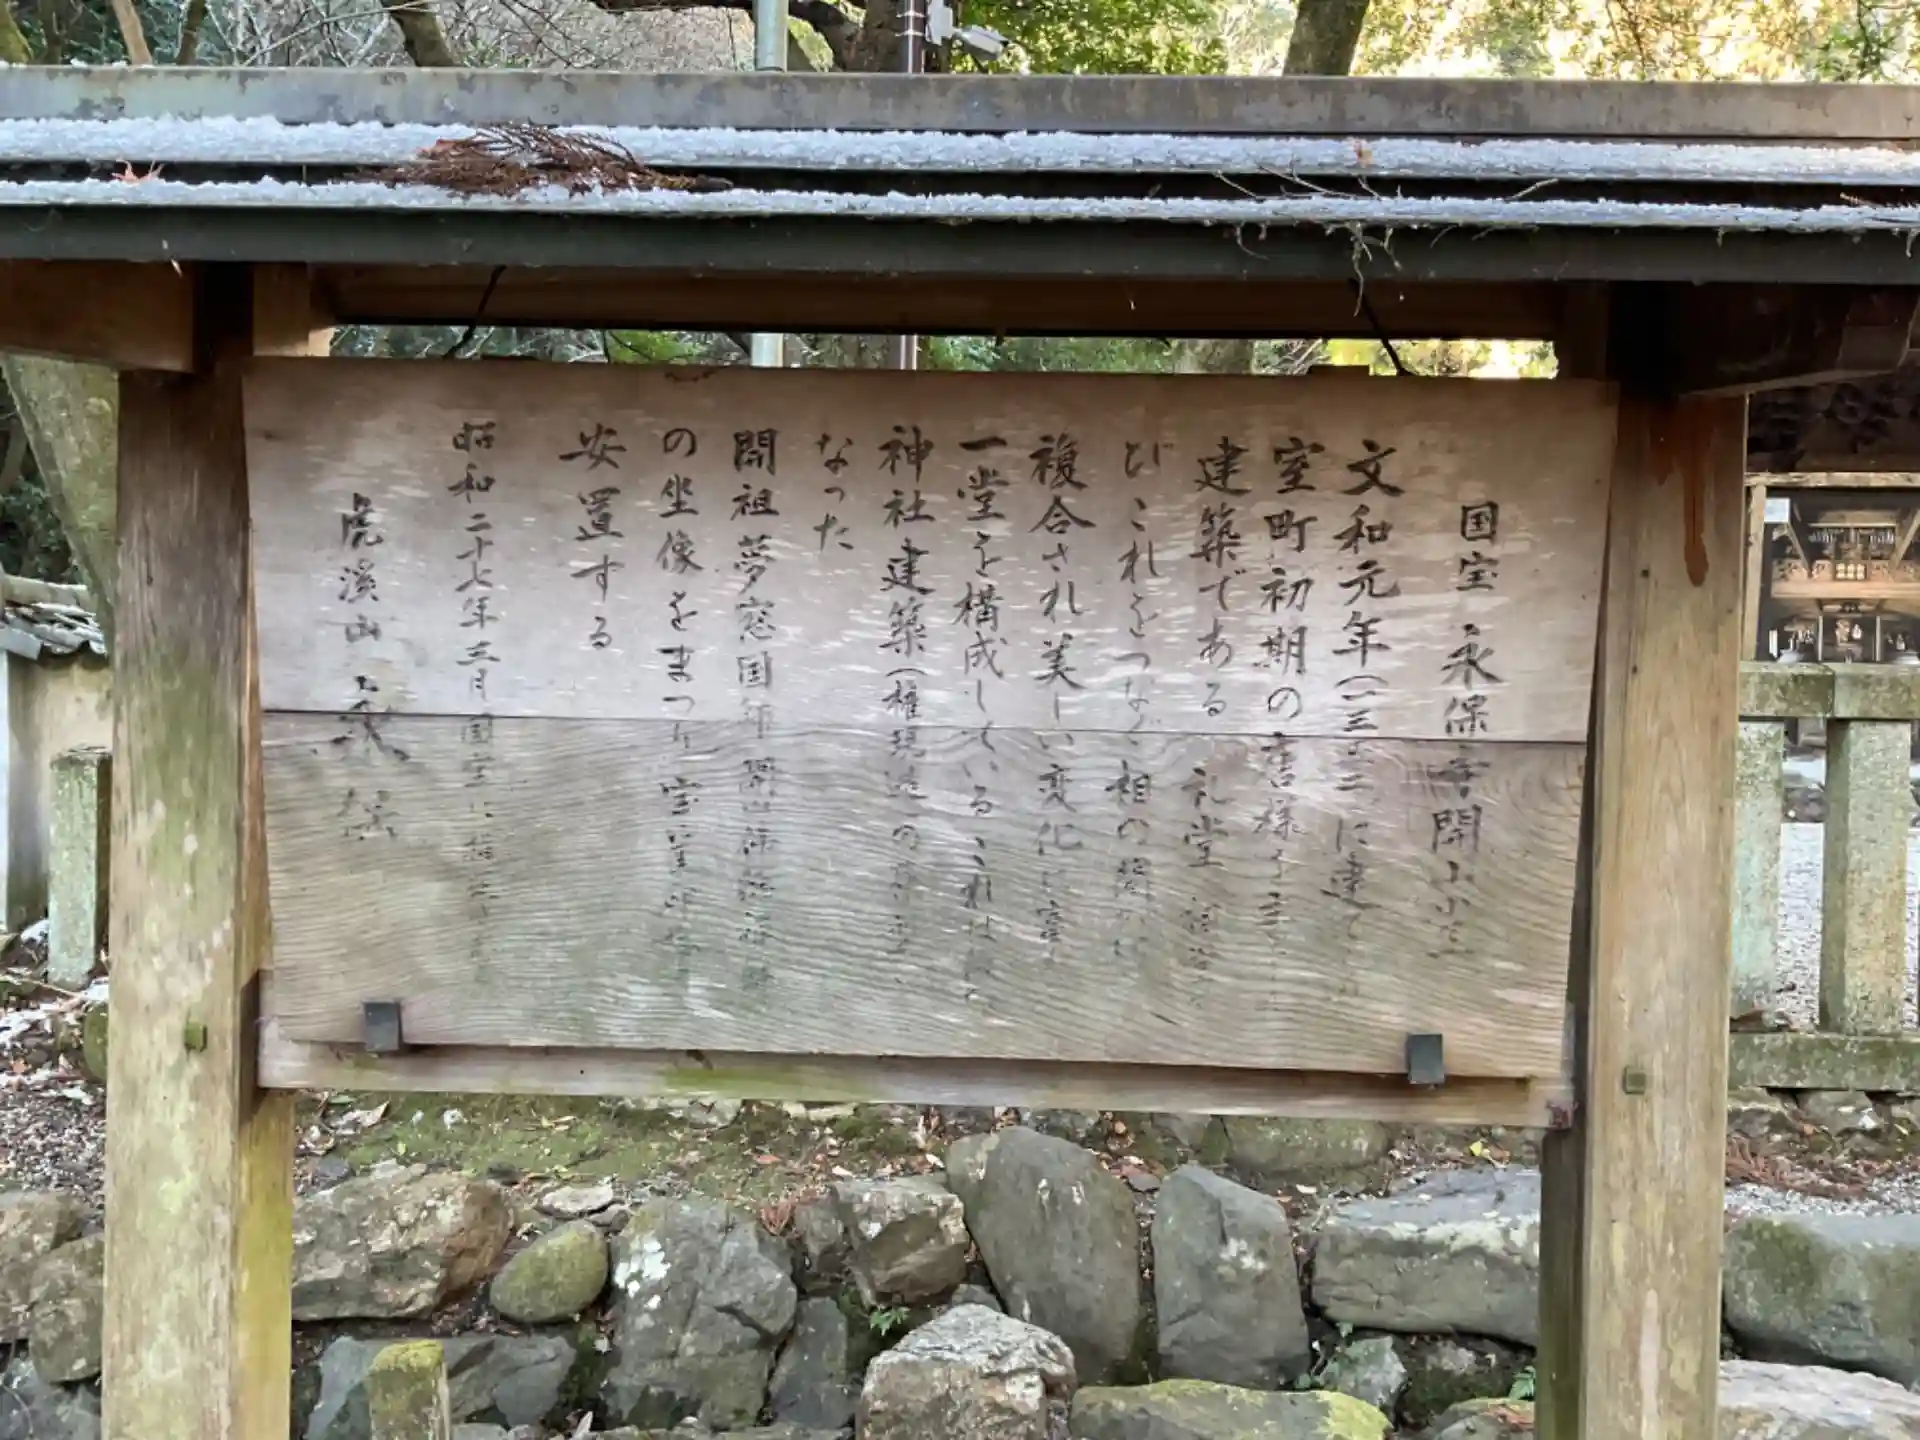 国宝 永保寺開山堂
文和元年(一三五二に建て
室町初期の唐様を主
建築である 礼堂 祠堂
びこれをつなぐ相の間が
複合され美しい変化に富
一堂を構成しているこれは
神社建築(権現造の
なった
開祖夢窓国師 開山 師
の坐像をまつり宝
安置する
昭和二十七年三月国宝に
虎溪山 永保